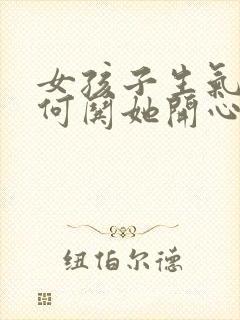 女孩子生氣
何関她開心
纽伯尔德